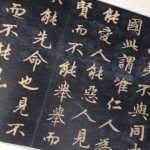 不與同
國此謂惟仁人為
能愛人能惡人見
賢而不能舉舉而
不能先命也見不
而不能